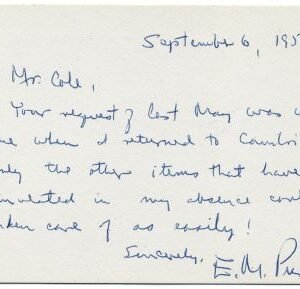 September 6, 195
Mr. Cole,
Your request of last May was
me when I returned to Cambri
the other items that have
in my absence
taken care of as easily!
Sincerely,
E. M. Pur